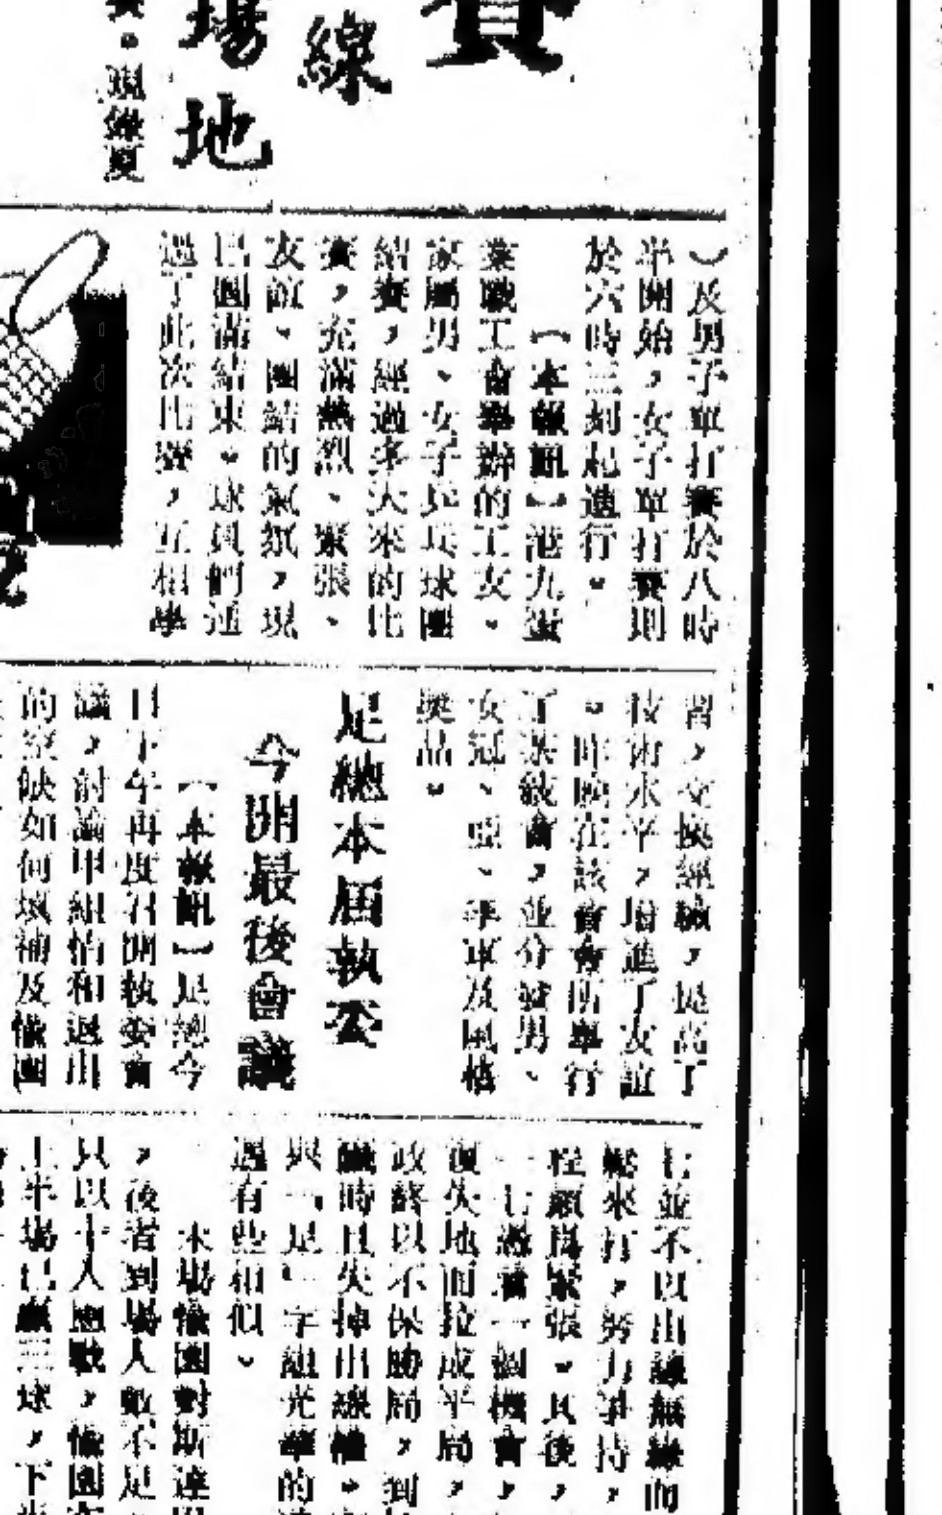 賽
線
場地
。現錄夏
）及男子單打賽於八時
半開始，女子單打賽則
於六時三刻起進行。
【本報訊】港九蛋
業職工會舉辦的工友、
家屬男、女子乒乓球團
結賽，經過多天來的比
賽，充滿熱烈、緊張、
友誼、團結的氣氛，現
已圓滿結束。球員們通
過了此次比賽，互相學
習，交換經驗，提高了
技術水平，增進了友誼
。昨晚在該會會所舉行
了茶敍會，並分發男、
女冠、亞、季軍及風格
獎品。
足總本屆執委
今開最後會議
【本報訊】足總今
日下午再度召開執委會
議，討論甲組怡和退出
的空缺如何填補及愉園
七並不以出線無緣而
鬆來打，努力爭持，
程頗爲緊張。其後，
七憑着一個機會，
復失地而拉成平局，
政終以不保勝局，到
時且失掉出線權。
與「足」字組光華的
過有些相似。
末場愉園對斯達
，後者到場人數不足，
只以十人應戰，愉園在
上半場已贏三球，下